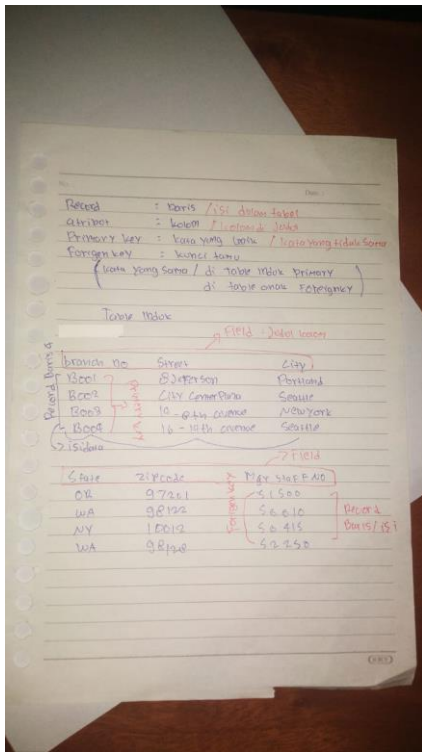 No :
Date :
Record : baris / isi dalam tabel
atribut : kolom /
Primary key : kata yang unik / kata yang tidak sama
Foreign key : kunci tamu
(kata yang sama / di table induk primary
di table anak Foreignkey)
Table induk
Field : Judul kolom
branch no Street City
B001 8 Jefferson Portland
B002 City Center Plaza Seattle
B003 10 - 8th avenue New York
B004 16 - 10th avenue Seattle
Record Baris 4
Primary key
isi data
Field
State Zipcode Mgr Staff NO
OR 97201 S1500
WA 98122 S0010
NY 10012 S0415
WA 98128 S2250
Foreign key
Record
Baris / isi